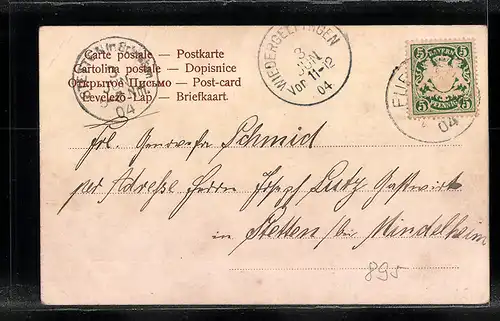 Carte postale — Postkarte
Cartolina postale — Dopisnice
Открытое Письмо — Post-card
Levelező-Lap — Briefkaart
WIEDERGELTINGEN
3
JUN
Vor 11-12
04
BAYERN
5 5
5 PFENNIG 5
04
04
Frl. Genovefa Schmid
per Adresse Herrn Josef Lutz Gastwirt
in Stetten bei Mindelheim
895